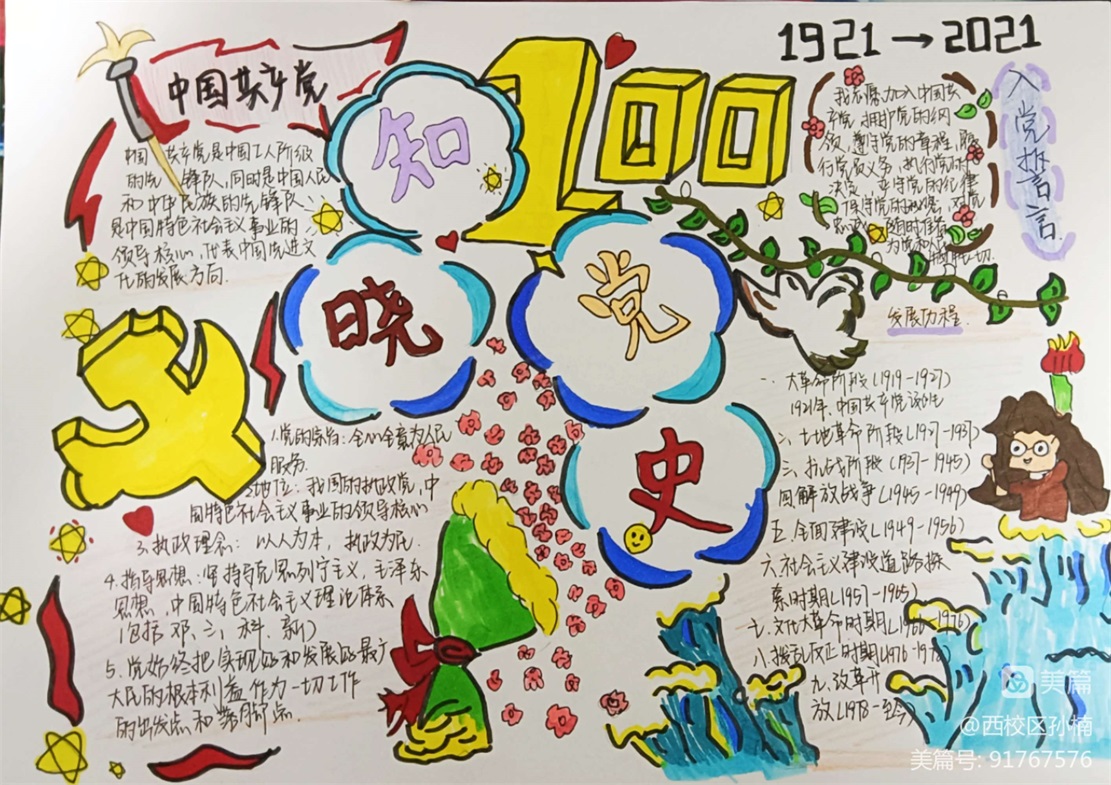 1921→2021
100
中国共产党
知
晓
党
史
中国共产党是中国工人阶级
的先锋队,同时是中国人民
和中华民族的先锋队,
是中国特色社会主义事业的
领导核心,代表中国先进文
化的发展方向.
入党誓言
我志愿加入中国共
产党,拥护党的纲
领,遵守党的章程,履
行党员义务,执行党的
决定,严守党的纪律
随时准备
为党和人民
牺牲一切.
1.党的宗旨:全心全意为人民
服务.
2.地位:我国的执政党,中
国特色社会主义事业的领导核心
3.执政理念:以人为本,执政为民.
4.指导思想:坚持马克思列宁主义,毛泽东
思想,中国特色社会主义理论体系
(包括邓、三、科、新)
5.党始终把实现好和发展好最广
大民的根本利益作为一切工作
的出发点和落脚点.
发展历程.
一、大革命阶段(1919-1927)
1921年,中国共产党诞生
二、土地革命阶段(1927-1937)
三、抗战阶段(1937-1945)
四解放战争(1945-1949)
五.全面建设(1949-1956)
六社会主义建设道路探
索时期(1957-1965)
七、文化大革命时期(1966-1976)
八.拨乱反正时期(1976-1978)
九.改革开
放(1978-至今)
美篇
@西校区孙楠
美篇号: 91767576